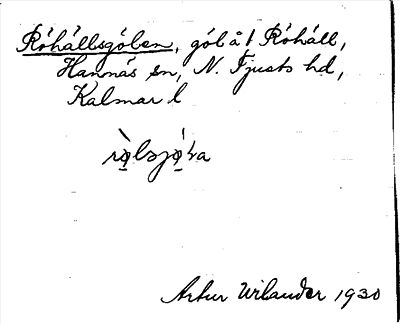 Röhällsgölen, göl å f Röhäll,
Hannäs sn, N. Tjusts hd,
Kalmar l
Artur Wilander 1930